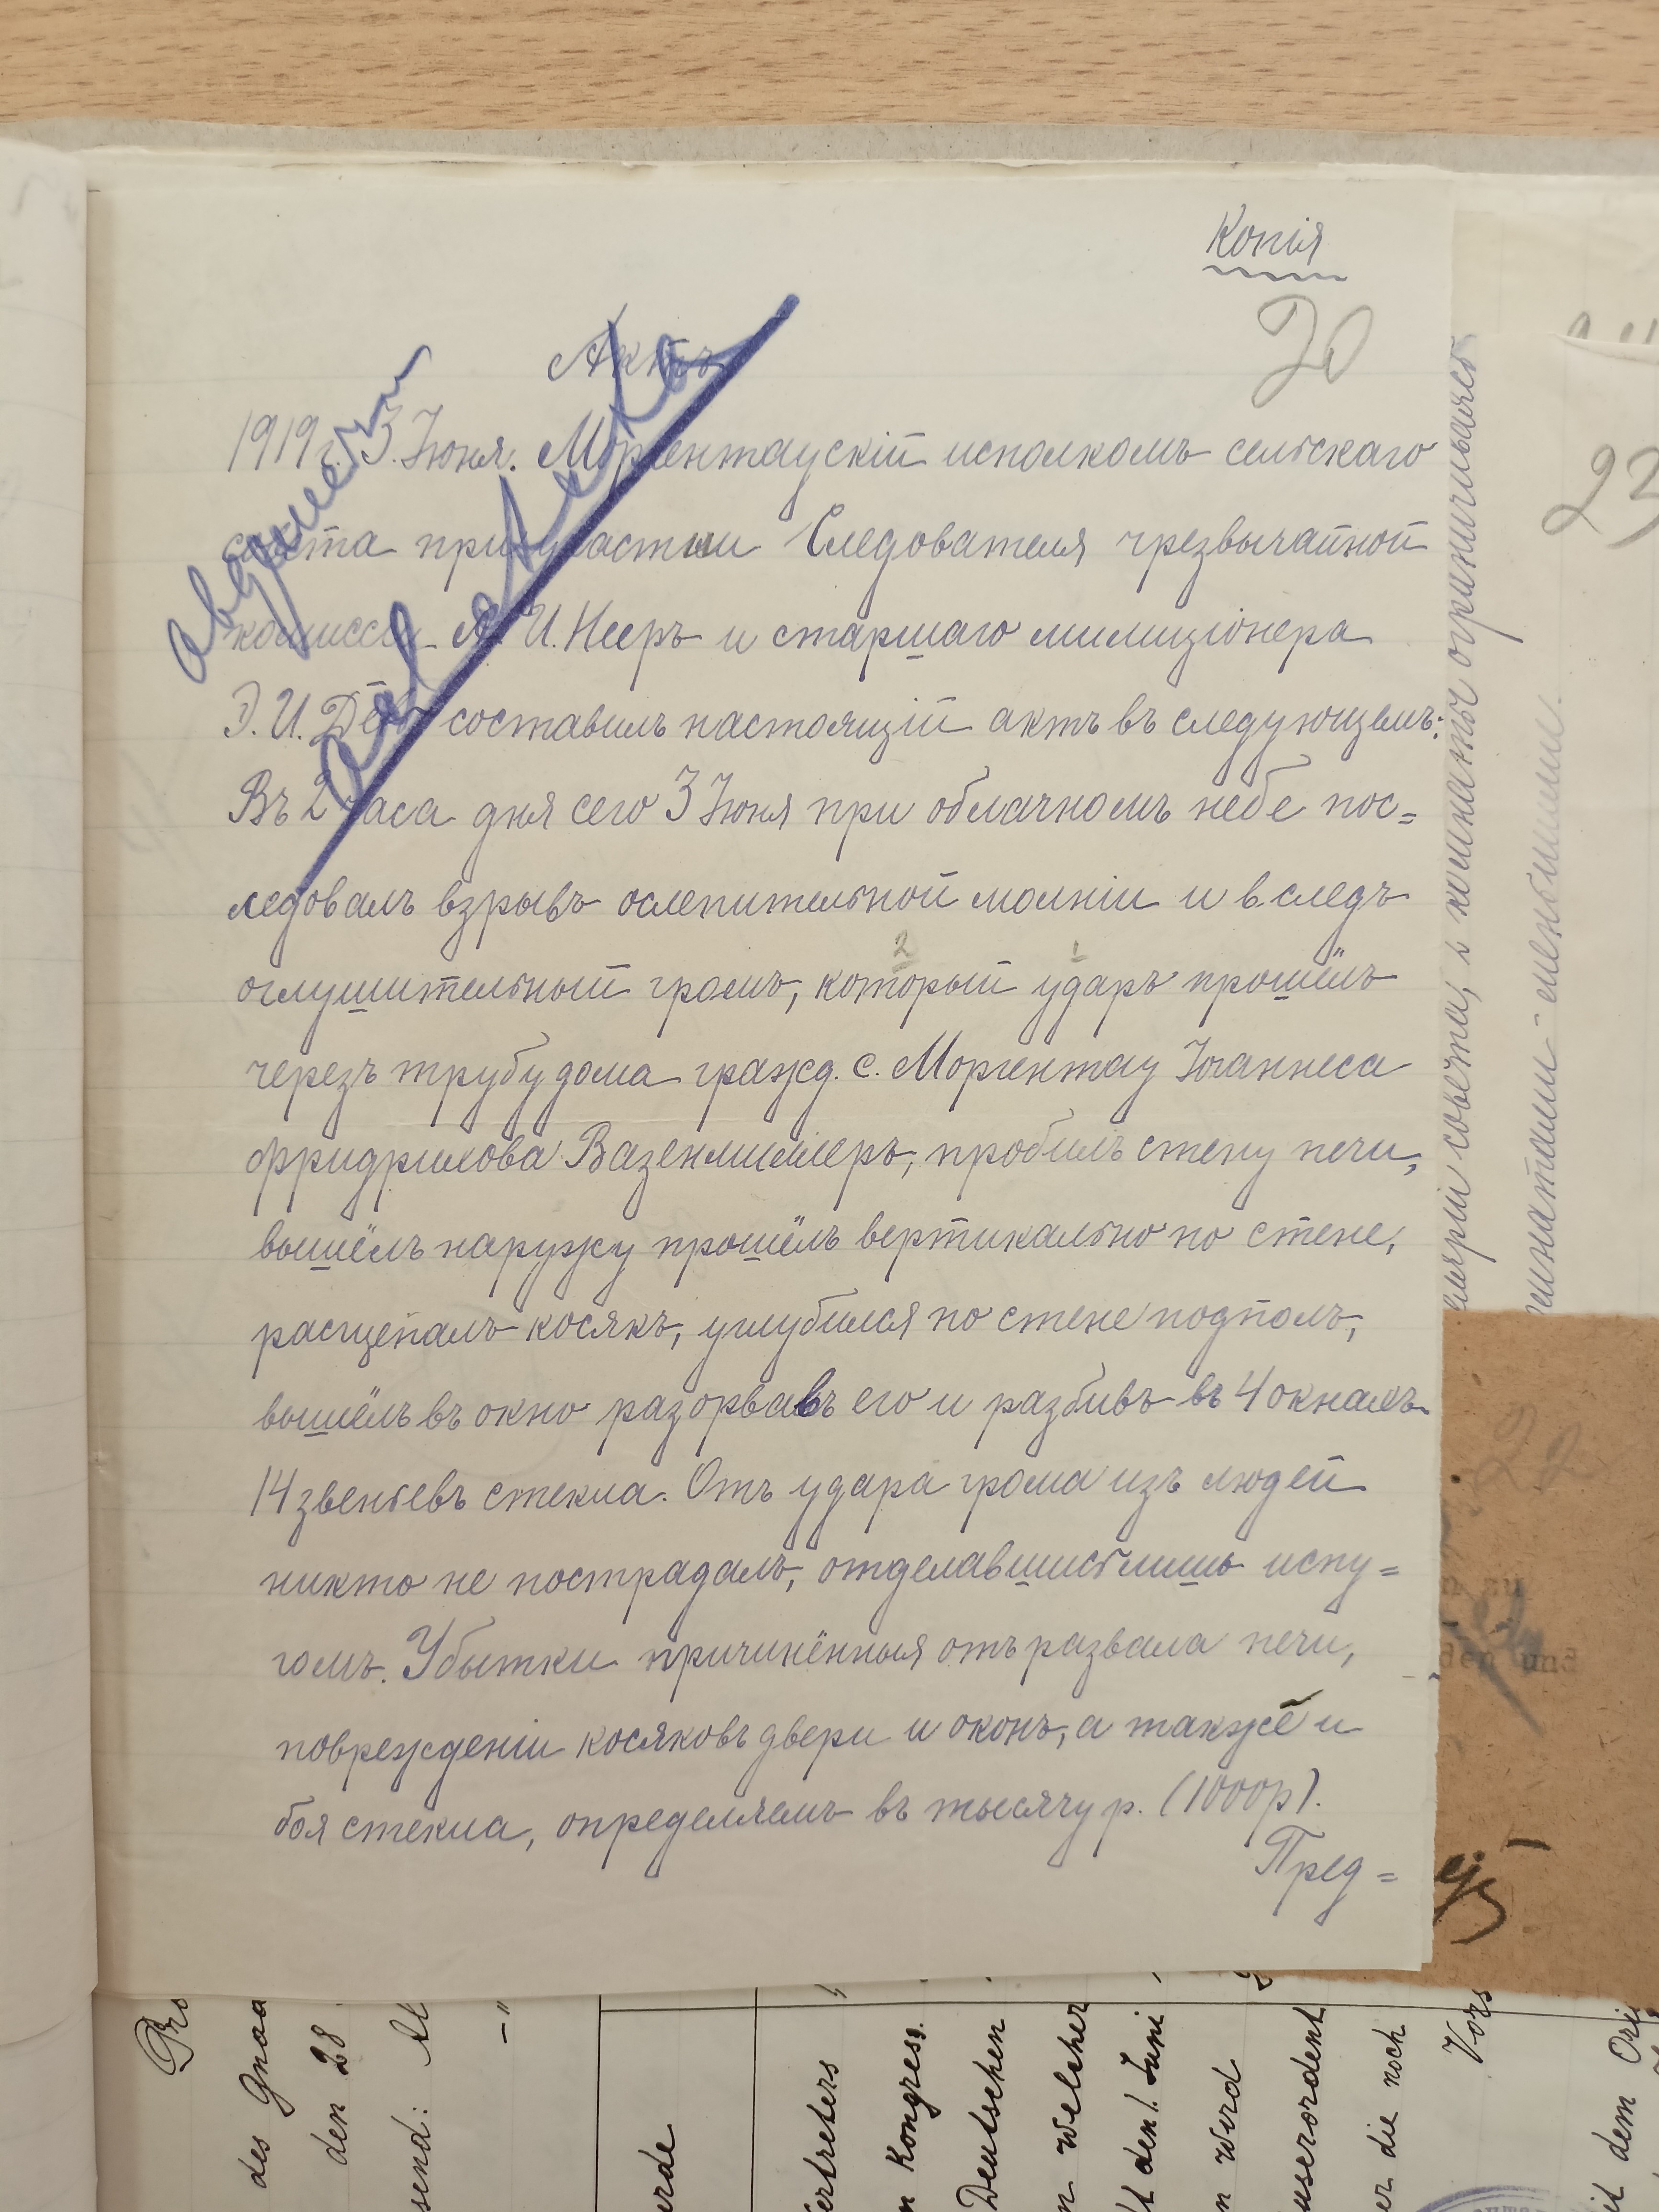 Копія
20
Актъ
1919 г. 3 Іюня. Моргентаускій исполкомъ сельскаго
совета при участіи Следователя чрезвычайной
комиссіи А. И. Нееръ и старшаго милиціонера
Э. И. составилъ настоящій актъ въ следующемъ:
Въ 2 часа дня сего 3 Іюня при облачномъ небе пос=
ледовалъ взрывъ ослепительной молніи и вследъ
2 1
оглушительный громъ, который ударъ прошёлъ
черезъ трубу дома гражд. с. Моргентау Іоганнеса
Фридрихова Вазенмиллеръ, пробилъ стену печи,
вышелъ наружу прошёлъ вертикально по стене,
расщепалъ косякъ, углубился по стене подполъ,
вышёлъ въ окно разорвавъ его и разбивъ въ 4 окнахъ
14 звеньевъ стекла. Отъ удара грома изъ людей
никто не пострадалъ, отделавшись лишь испу=
гомъ. Убытки причинённыя отъ развала печи,
поврежденіи косяковъ двери и оконъ, а также и
боя стекла, определяемъ въ тысячу р. (1000р).
Пред=
совета, и
23
22
den und
des
den 28
send:
erde
ertreters
Kongress.
Deutschen
Welcher
den 1. Juni
wird
usserordent
er die noch
Vors
it dem Ori